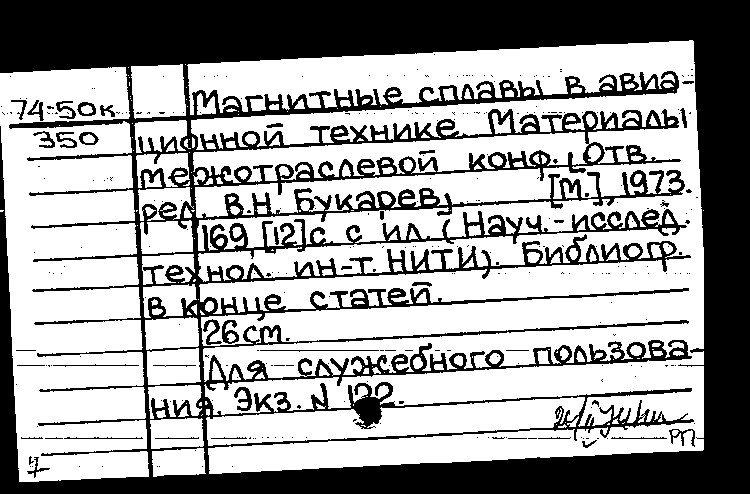 74-50к
350
Магнитные сплавы в авиа-
ционной технике. Материалы
межотраслевой конф. [Отв.
ред. В.Н. Букарев]. [М.], 1973.
169, [12]с. с ил. (Науч.-исслед.
технол. ин-т. НИТИ). Библиогр.
в конце статей.
26см.
Для служебного пользова-
ния. Экз. N 122.
РП